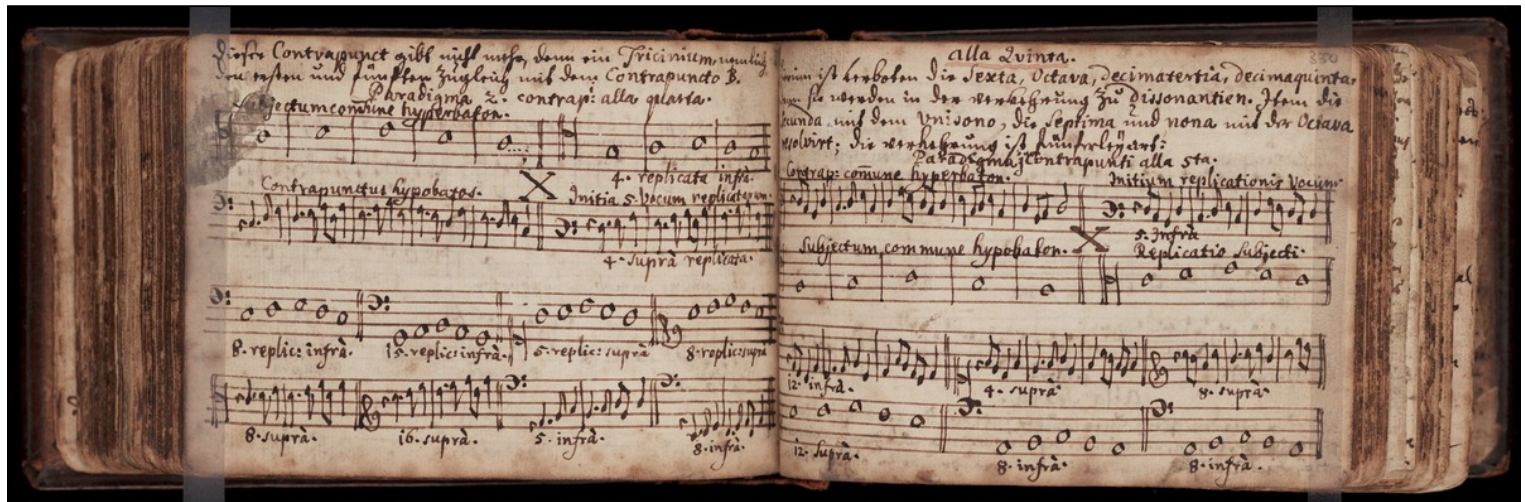 dieser Contrapunct gibt nicht mehr, denn ein Tricinium, nemlich
den ersten und fünften zugleich mit dem Contrapuncto B.
Paradigma 2. contrap: alla quarta.
Subjectum com̄une hyperbaton.
4. replicata infrà.
Contrapunctus hypobatos.
Initia 5. vocum replicatarum.
4. suprà replicata.
8. replic: infrà.
15. replic: infrà.
5. replic: suprà
8. replic: suprà
8. suprà.
16. suprà.
5. infrà.
8. infrà.
alla Quinta.
330
ist verboten die Sexta, Octava, decimatertia, decimaquinta.
sie werden in der verkehrung zu dissonantien. Item die
mit dem Unisono, die Septima und nona mit der Octava
resolvirt; die verkehrung ist fünferley art:
Paradigma Contrapunti alla 5ta.
Contrap: com̄une hyperbaton.
Initium replicationis vocum
5. Infrà
Subjectum commune hypobaton.
Replicatio Subjecti.
12. infrà.
4. suprà
8. suprà.
12. suprà.
8. infrà.
8. infrà.